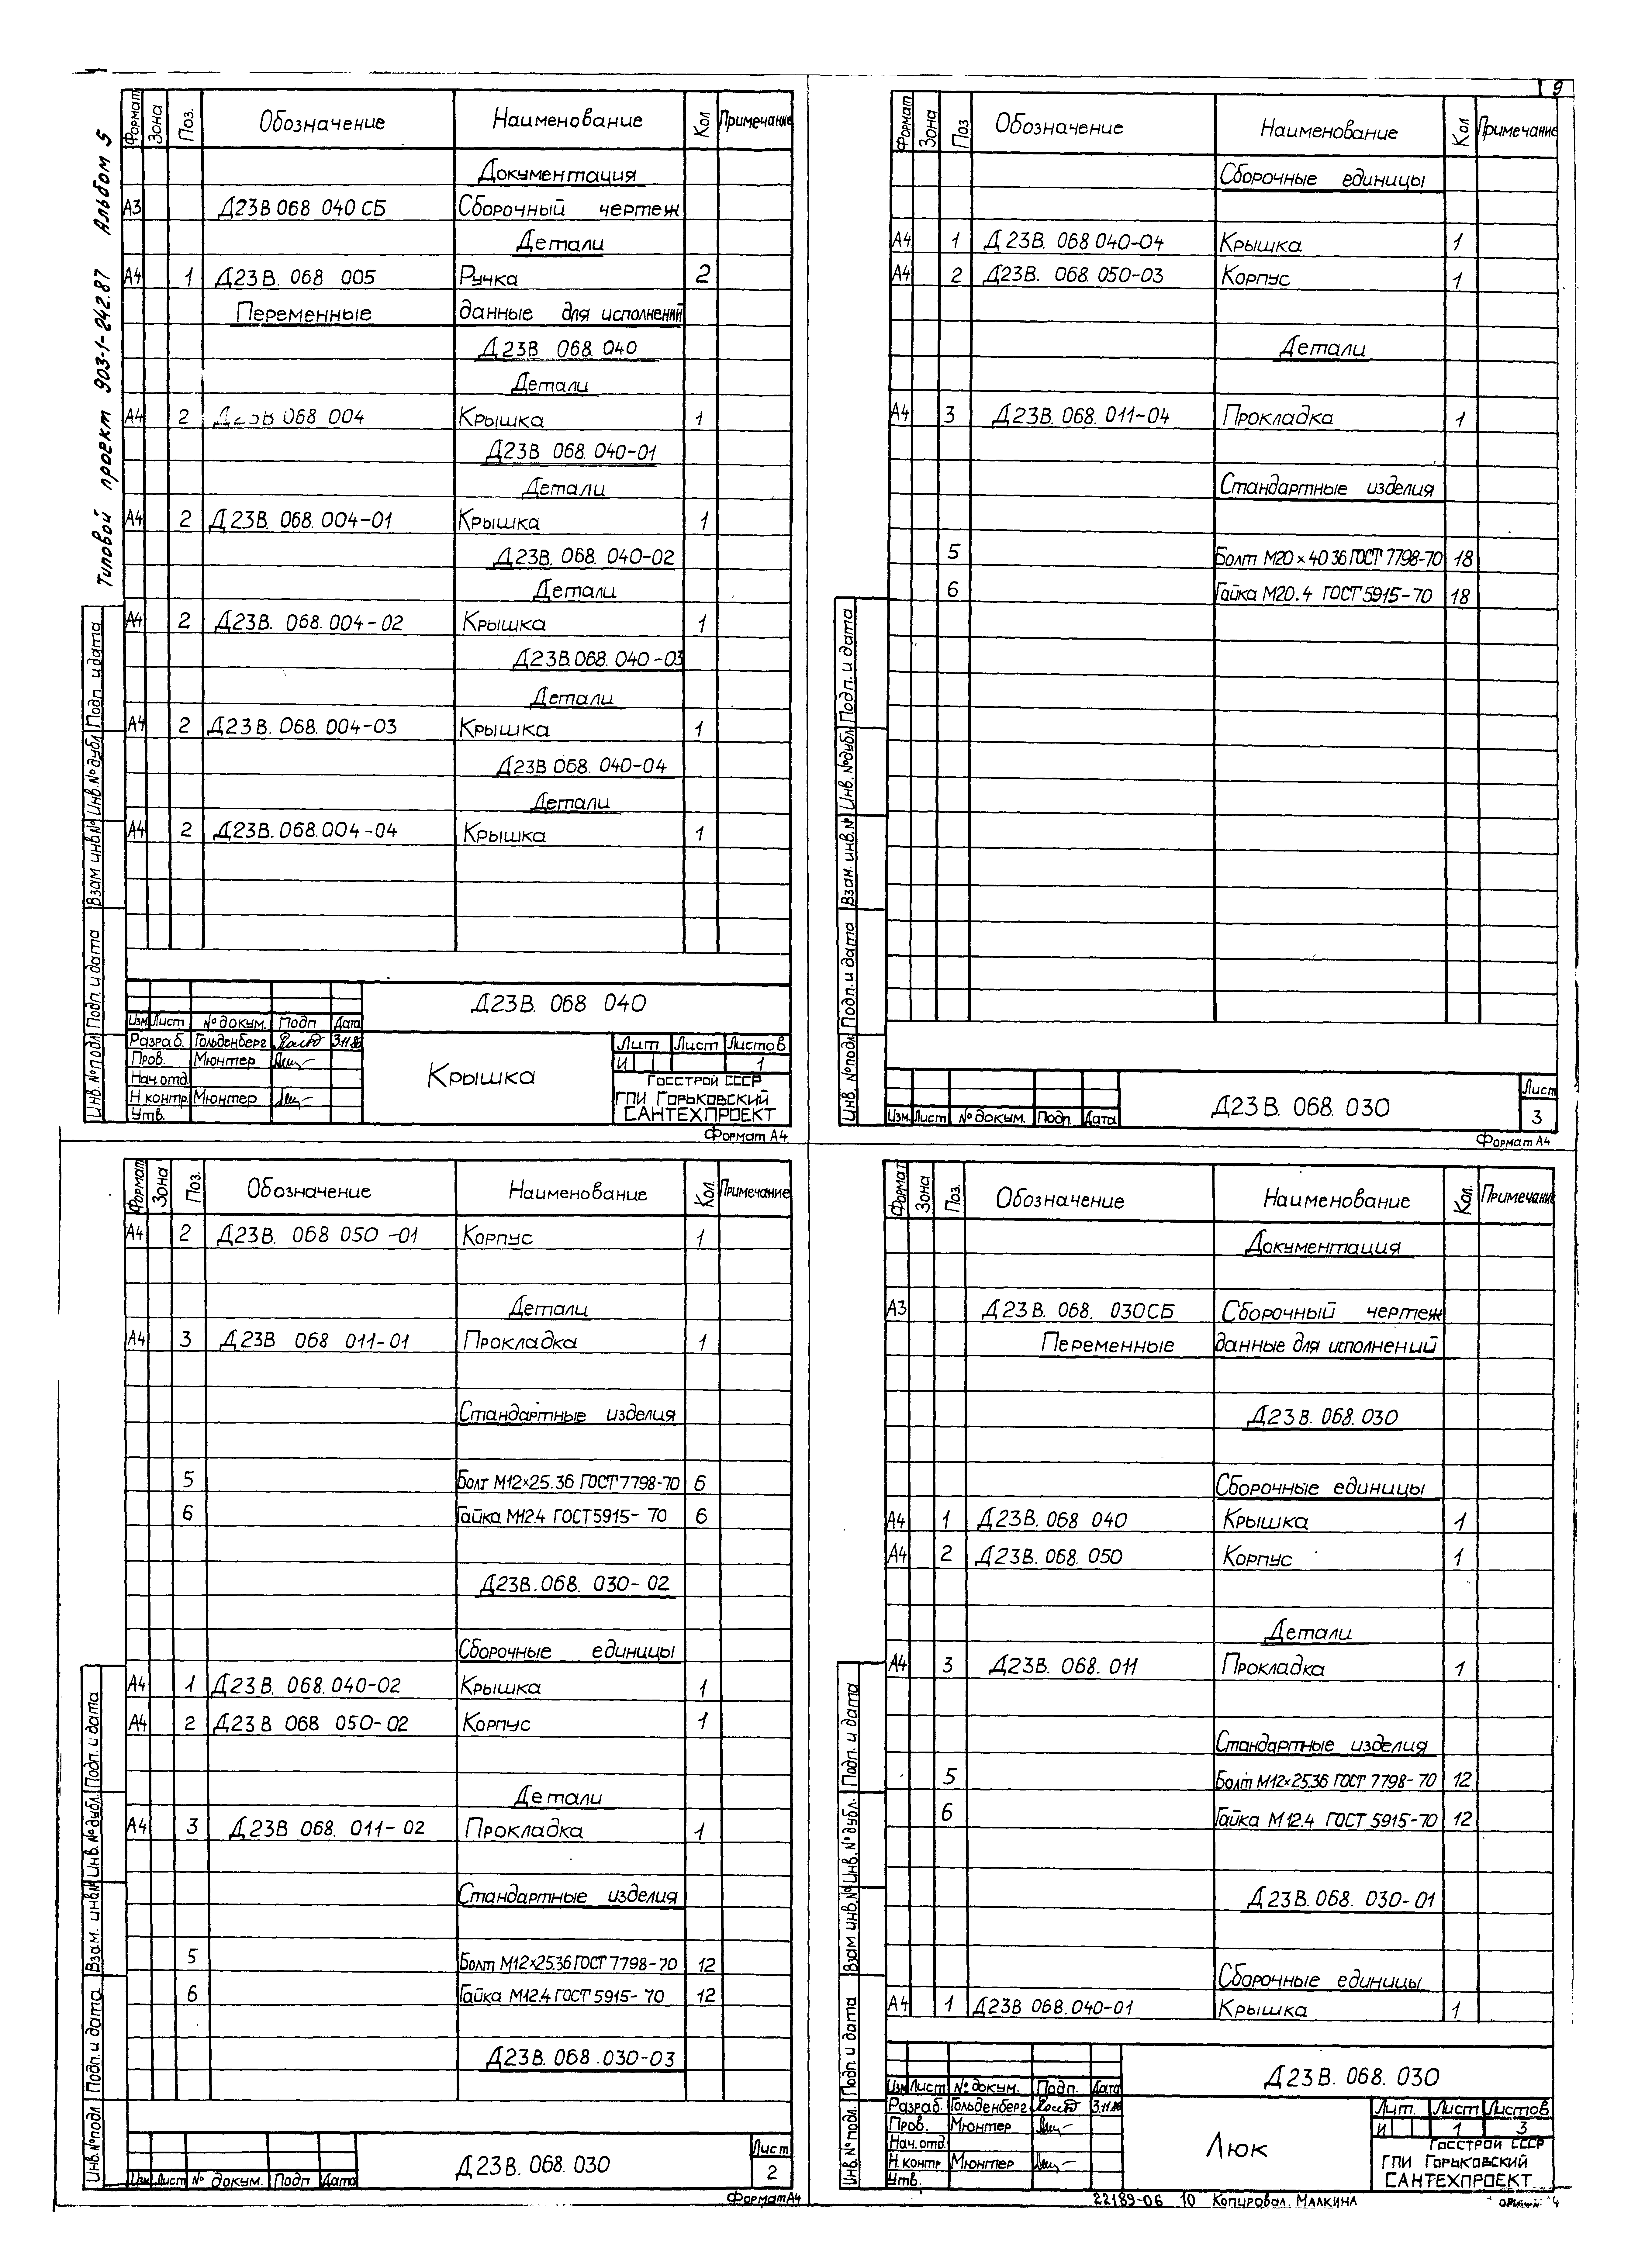 9
Типовой проект 903-1-242.87 Альбом 5
Формат Зона Поз. Обозначение Наименование Кол Примечание
Документация
А3 Д23В 068 040 СБ Сборочный чертеж
Детали
А4 1 Д23В. 068 005 Ручка 2
Переменные данные для исполнений
Д23В 068 040
Детали
А4 2 Д23В 068 004 Крышка 1
Д23В 068. 040-01
Детали
А4 2 Д23В. 068. 004-01 Крышка 1
Д23В. 068. 040-02
Детали
А4 2 Д23В. 068. 004-02 Крышка 1
Д23В. 068. 040-03
Детали
А4 2 Д23В. 068. 004-03 Крышка 1
Д23В 068. 040-04
Детали
А4 2 Д23В. 068. 004-04 Крышка 1
Инв. № подл Подп. и дата Взам инв № Инв. № дубл Подп. и дата
Д23В. 068 040
Изм Лист № докум. Подп Дата
Разраб. Гольденберг 3.11.86
Пров. Мюнтер
Нач. отд.
Н контр. Мюнтер
Утв.
Крышка
Лит Лист Листов
И 1
Госстрой СССР
ГПИ Горьковский
САНТЕХПРОЕКТ
Формат А4
Формат Зона Поз Обозначение Наименование Кол Примечание
Сборочные единицы
А4 1 Д23В. 068 040-04 Крышка 1
А4 2 Д23В. 068. 050-03 Корпус 1
Детали
А4 3 Д23В. 068. 011-04 Прокладка 1
Стандартные изделия
5 Болт М20×40 36 ГОСТ 7798-70 18
6 Гайка М20.4 ГОСТ 5915-70 18
Инв. № подл Подп. и дата Взам. инв. № Инв. № дубл Подп. и дата
Изм. Лист № докум. Подп. Дата
Д23В. 068. 030
Лист
3
Формат А4
Формат Зона Поз. Обозначение Наименование Кол. Примечание
А4 2 Д23В. 068 050 -01 Корпус 1
Детали
А4 3 Д23В 068 011-01 Прокладка 1
Стандартные изделия
5 Болт М12×25.36 ГОСТ 7798-70 6
6 Гайка М12.4 ГОСТ 5915-70 6
Д23В. 068. 030-02
Сборочные единицы
А4 1 Д23В. 068. 040-02 Крышка 1
А4 2 Д23В 068 050-02 Корпус 1
Детали
А4 3 Д23В 068. 011-02 Прокладка 1
Стандартные изделия
5 Болт М12×25.36 ГОСТ 7798-70 12
6 Гайка М12.4 ГОСТ 5915-70 12
Д23В. 068 .030-03
Инв. № подл Подп. и дата Взам. инв № Инв. № дубл. Подп. и дата
Изм Лист № докум. Подп Дата
Д23В. 068. 030
Лист
2
Формат А4
Формат Зона Поз. Обозначение Наименование Кол. Примечание
Документация
А3 Д23В. 068. 030СБ Сборочный чертеж
Переменные данные для исполнений
Д23В. 068. 030
Сборочные единицы
А4 1 Д23В. 068 040 Крышка 1
А4 2 Д23В. 068. 050 Корпус 1
Детали
А4 3 Д23В. 068. 011 Прокладка 1
Стандартные изделия
5 Болт М12×25.36 ГОСТ 7798-70 12
6 Гайка М12.4 ГОСТ 5915-70 12
Д23В. 068. 030-01
Сборочные единицы
А4 1 Д23В 068. 040-01 Крышка 1
Инв. № подл. Подп. и дата Взам инв. № Инв. № дубл. Подп. и дата
Д23В. 068. 030
Изм Лист № докум. Подп. Дата
Разраб. Гольденберг 3.11.86
Пров. Мюнтер
Нач. отд.
Н. контр Мюнтер
Утв.
Люк
Лит. Лист Листов
И 1 3
Госстрой СССР
ГПИ Горьковский
САНТЕХПРОЕКТ
22189-06 10 Копировал. Малкина